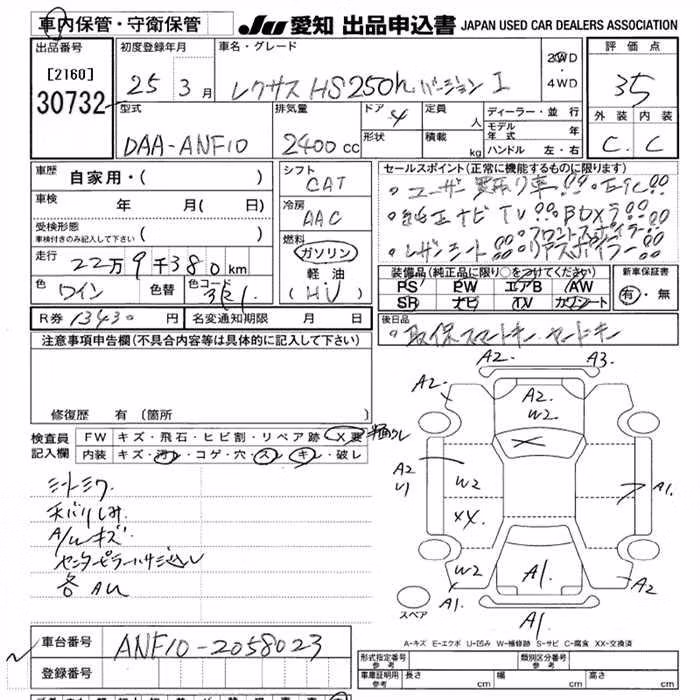 車内保管・守衛保管
JU 愛知 出品申込書 JAPAN USED CAR DEALERS ASSOCIATION
出品番号 初度登録年月 車名・グレード 評価点
[2160] 25年 3月 レクサス HS250h バージョン I 2WD 4WD 35
30732
型式 排気量 ドア 4 定員 人 ディーラー・並行 外装 内装
DAA-ANF10 2400cc 形状 積載 kg モデル年式 年 C C
ハンドル 左・右
車歴 自家用・( ) シフト CAT セールスポイント(正常に機能するものに限ります)
車検 年 月( 日) 冷房 AAC ・ユーザー買取り車!! ・ETC!!
受検形態 ・純正ナビTV!!
車検付きのみ記入して下さい ( ) 燃料 ・フロントスポイラー!!
走行 22万9千380km ガソリン ・レザーシート!! ・リアスポイラー!!
色 ワイン 色替 色コード 3R1 軽油 (HV)
装備品(純正品に限り○をつけてください) 新車保証書
PS PW エアB AW 有・無
SR ナビ TV カワシート
R券 13430円 名変通知期限 月 日 後日品
注意事項申告欄(不具合内容等は具体的に記入して下さい) ・取保 スマートキー カードキー
修復歴 有(箇所
検査員 FW キズ・飛石・ヒビ割・リペア跡・X要
記入欄 内装 キズ・汚レ・コゲ・穴・スレ・キレ・破レ
A2. A1. A3.
A2. W2
A2 U1 W2 A1.
XX
W2 A1. A2
A1. A1.
スペア
A/Wキズ
各AU
A-キズ E-エクボ U-凹み W-補修跡 S-サビ C-腐食 XX-交換済
車台番号 ANF10-2058023
登録番号
形式指定番号 参考 類別区分番号 参考
車庫証明用 参考 長さ cm 幅 cm 高さ cm